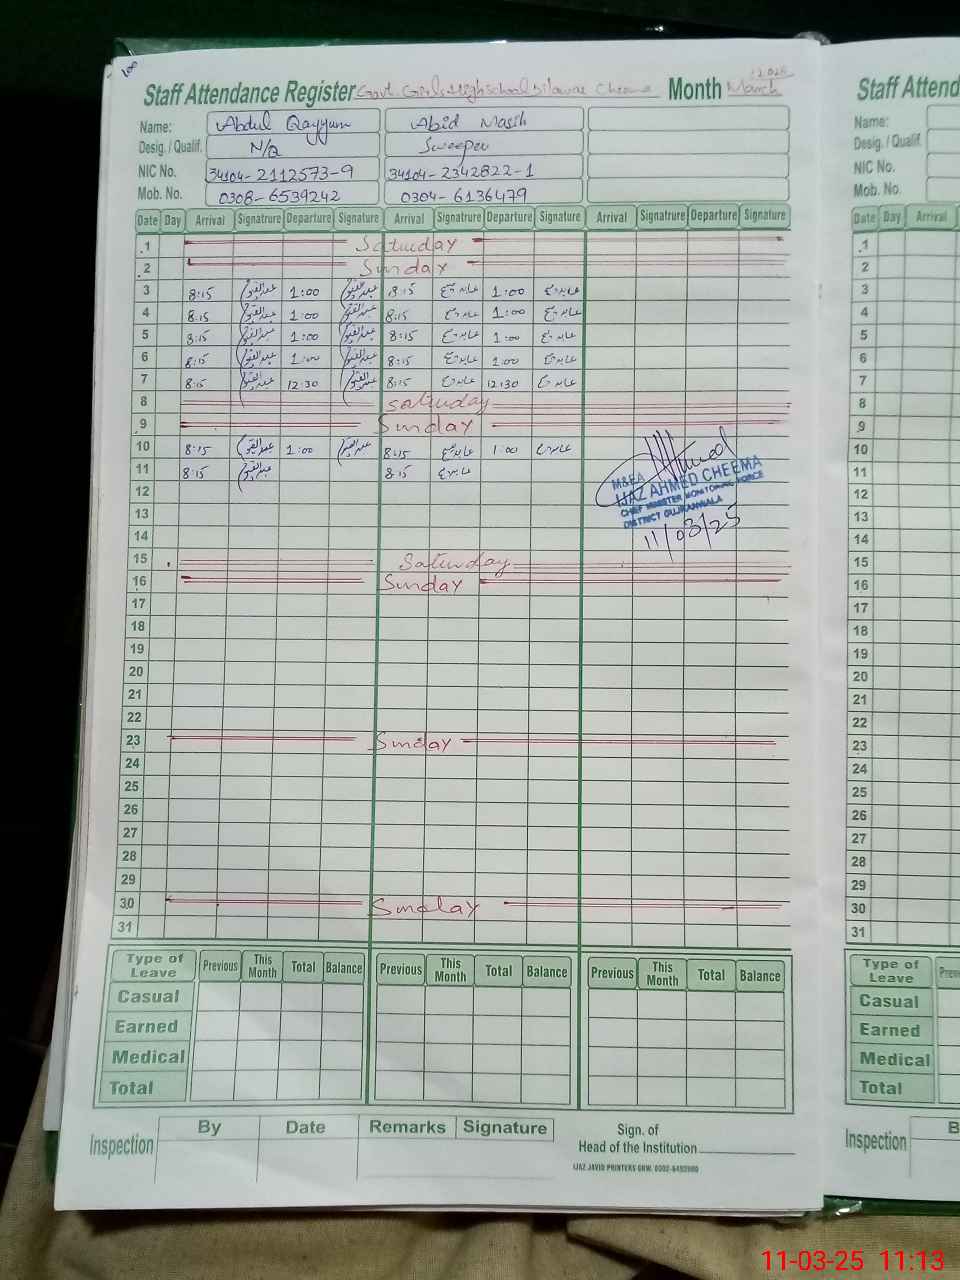 100
Staff Attendance Register Govt. Girls High school Dilawar Cheema Month March 2025
Name: Abdul Qayyum Abid Masih
Desig. / Qualif. N/Q Sweeper
NIC No. 34104-2112573-9 34104-2342822-1
Mob. No. 0308-6539242 0304-6136479
Date Day Arrival Signatrure Departure Signature Arrival Signatrure Departure Signature Arrival Signatrure Departure Signature
1 Saturday
2 Sunday
3 8:15 عبدالقیوم 1:00 عبدالقیوم 8:15 عابد مسیح 1:00 عابد مسیح
4 8:15 عبدالقیوم 1:00 عبدالقیوم 8:15 عابد مسیح 1:00 عابد مسیح
5 8:15 عبدالقیوم 1:00 عبدالقیوم 8:15 عابد مسیح 1:00 عابد مسیح
6 8:15 عبدالقیوم 1:00 عبدالقیوم 8:15 عابد مسیح 1:00 عابد مسیح
7 8:15 عبدالقیوم 12:30 عبدالقیوم 8:15 عابد مسیح 12:30 عابد مسیح
8 Saturday
9 Sunday
10 8:15 عبدالقیوم 1:00 عبدالقیوم 8:15 عابد مسیح 1:00 عابد مسیح
11 8:15 عبدالقیوم 8:15 عابد مسیح
M&EA
IJAZ AHMED CHEEMA
CHIEF MINISTER MONITORING FORCE
DISTRICT GUJRANWALA
11/03/25
12
13
14
15 Saturday
16 Sunday
17
18
19
20
21
22
23 Sunday
24
25
26
27
28
29
30 Sunday
31
Type of Leave Previous This Month Total Balance Previous This Month Total Balance Previous This Month Total Balance
Casual
Earned
Medical
Total
Inspection By Date Remarks Signature
Sign. of
Head of the Institution
IJAZ JAVID PRINTERS GRW. 0302-6492900
Staff Attend
Name:
Desig. / Qualif.
NIC No.
Mob. No.
Date Day Arrival
1
2
3
4
5
6
7
8
9
10
11
12
13
14
15
16
17
18
19
20
21
22
23
24
25
26
27
28
29
30
31
Type of Leave Prev
Casual
Earned
Medical
Total
Inspection B
11-03-25 11:13